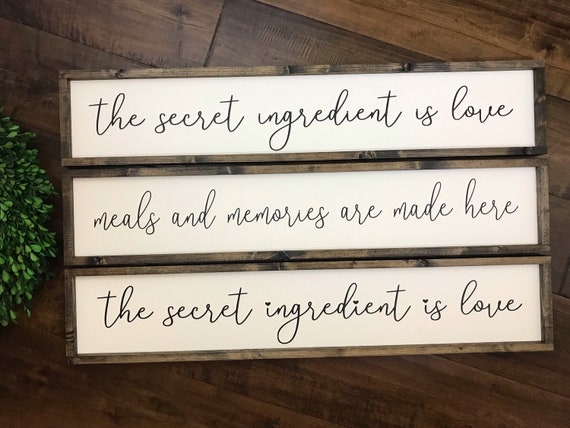 the secret ingredient is love
meals and memories are made here
the secret ingredient is love